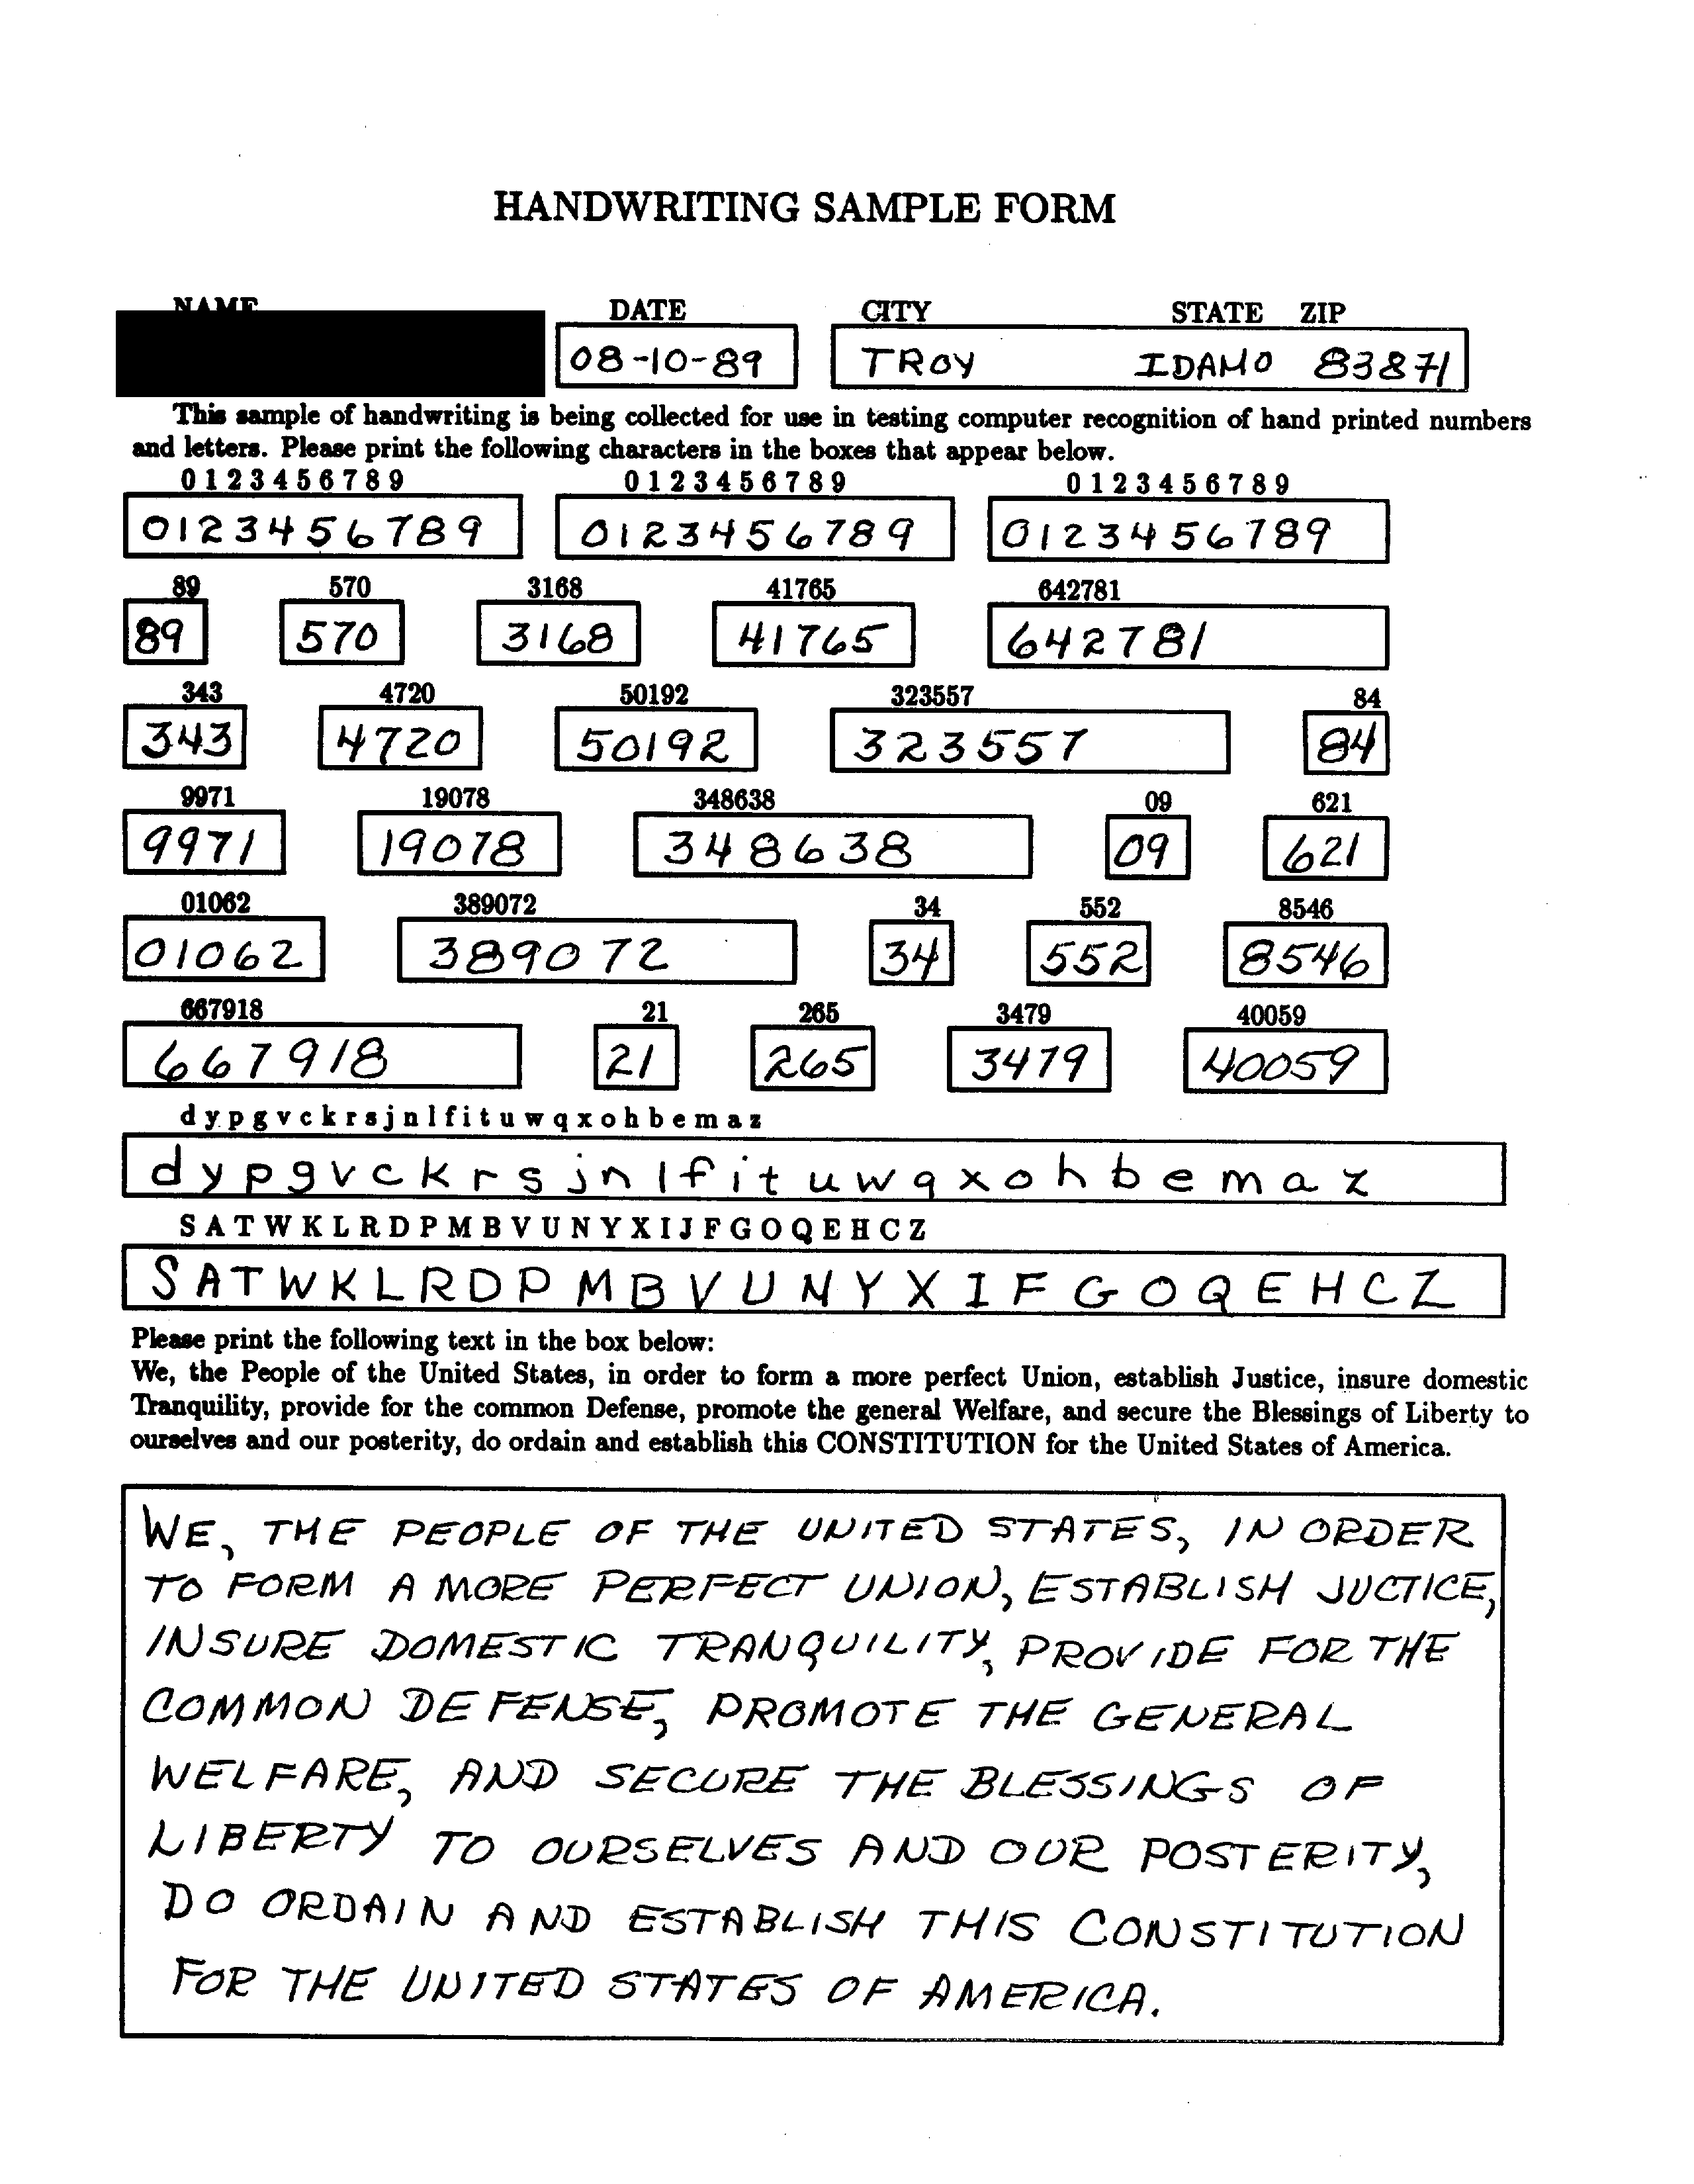 HANDWRITING SAMPLE FORM
NAME DATE CITY STATE ZIP
08-10-89 TROY IDAHO 83871
This sample of handwriting is being collected for use in testing computer recognition of hand printed numbers
and letters. Please print the following characters in the boxes that appear below.
0 1 2 3 4 5 6 7 8 9 0 1 2 3 4 5 6 7 8 9 0 1 2 3 4 5 6 7 8 9
0123456789 0123456789 0123456789
89 570 3168 41765 642781
89 570 3168 41765 642781
343 4720 50192 323557 84
343 4720 50192 323557 84
9971 19078 348638 09 621
9971 19078 348638 09 621
01062 389072 34 552 8546
01062 389072 34 552 8546
667918 21 265 3479 40059
667918 21 265 3479 40059
d y p g v c k r s j n l f i t u w q x o h b e m a z
d y p g v c k r s j n l f i t u w q x o h b e m a z
S A T W K L R D P M B V U N Y X I J F G O Q E H C Z
S A T W K L R D P M B V U N Y X I F G O Q E H C Z
Please print the following text in the box below:
We, the People of the United States, in order to form a more perfect Union, establish Justice, insure domestic
Tranquility, provide for the common Defense, promote the general Welfare, and secure the Blessings of Liberty to
ourselves and our posterity, do ordain and establish this CONSTITUTION for the United States of America.
WE, THE PEOPLE OF THE UNITED STATES, IN ORDER
TO FORM A MORE PERFECT UNION, ESTABLISH JUCTICE,
INSURE DOMESTIC TRANQUILITY, PROVIDE FOR THE
COMMON DEFENSE, PROMOTE THE GENERAL
WELFARE, AND SECURE THE BLESSINGS OF
LIBERTY TO OURSELVES AND OUR POSTERITY,
DO ORDAIN AND ESTABLISH THIS CONSTITUTION
FOR THE UNITED STATES OF AMERICA.